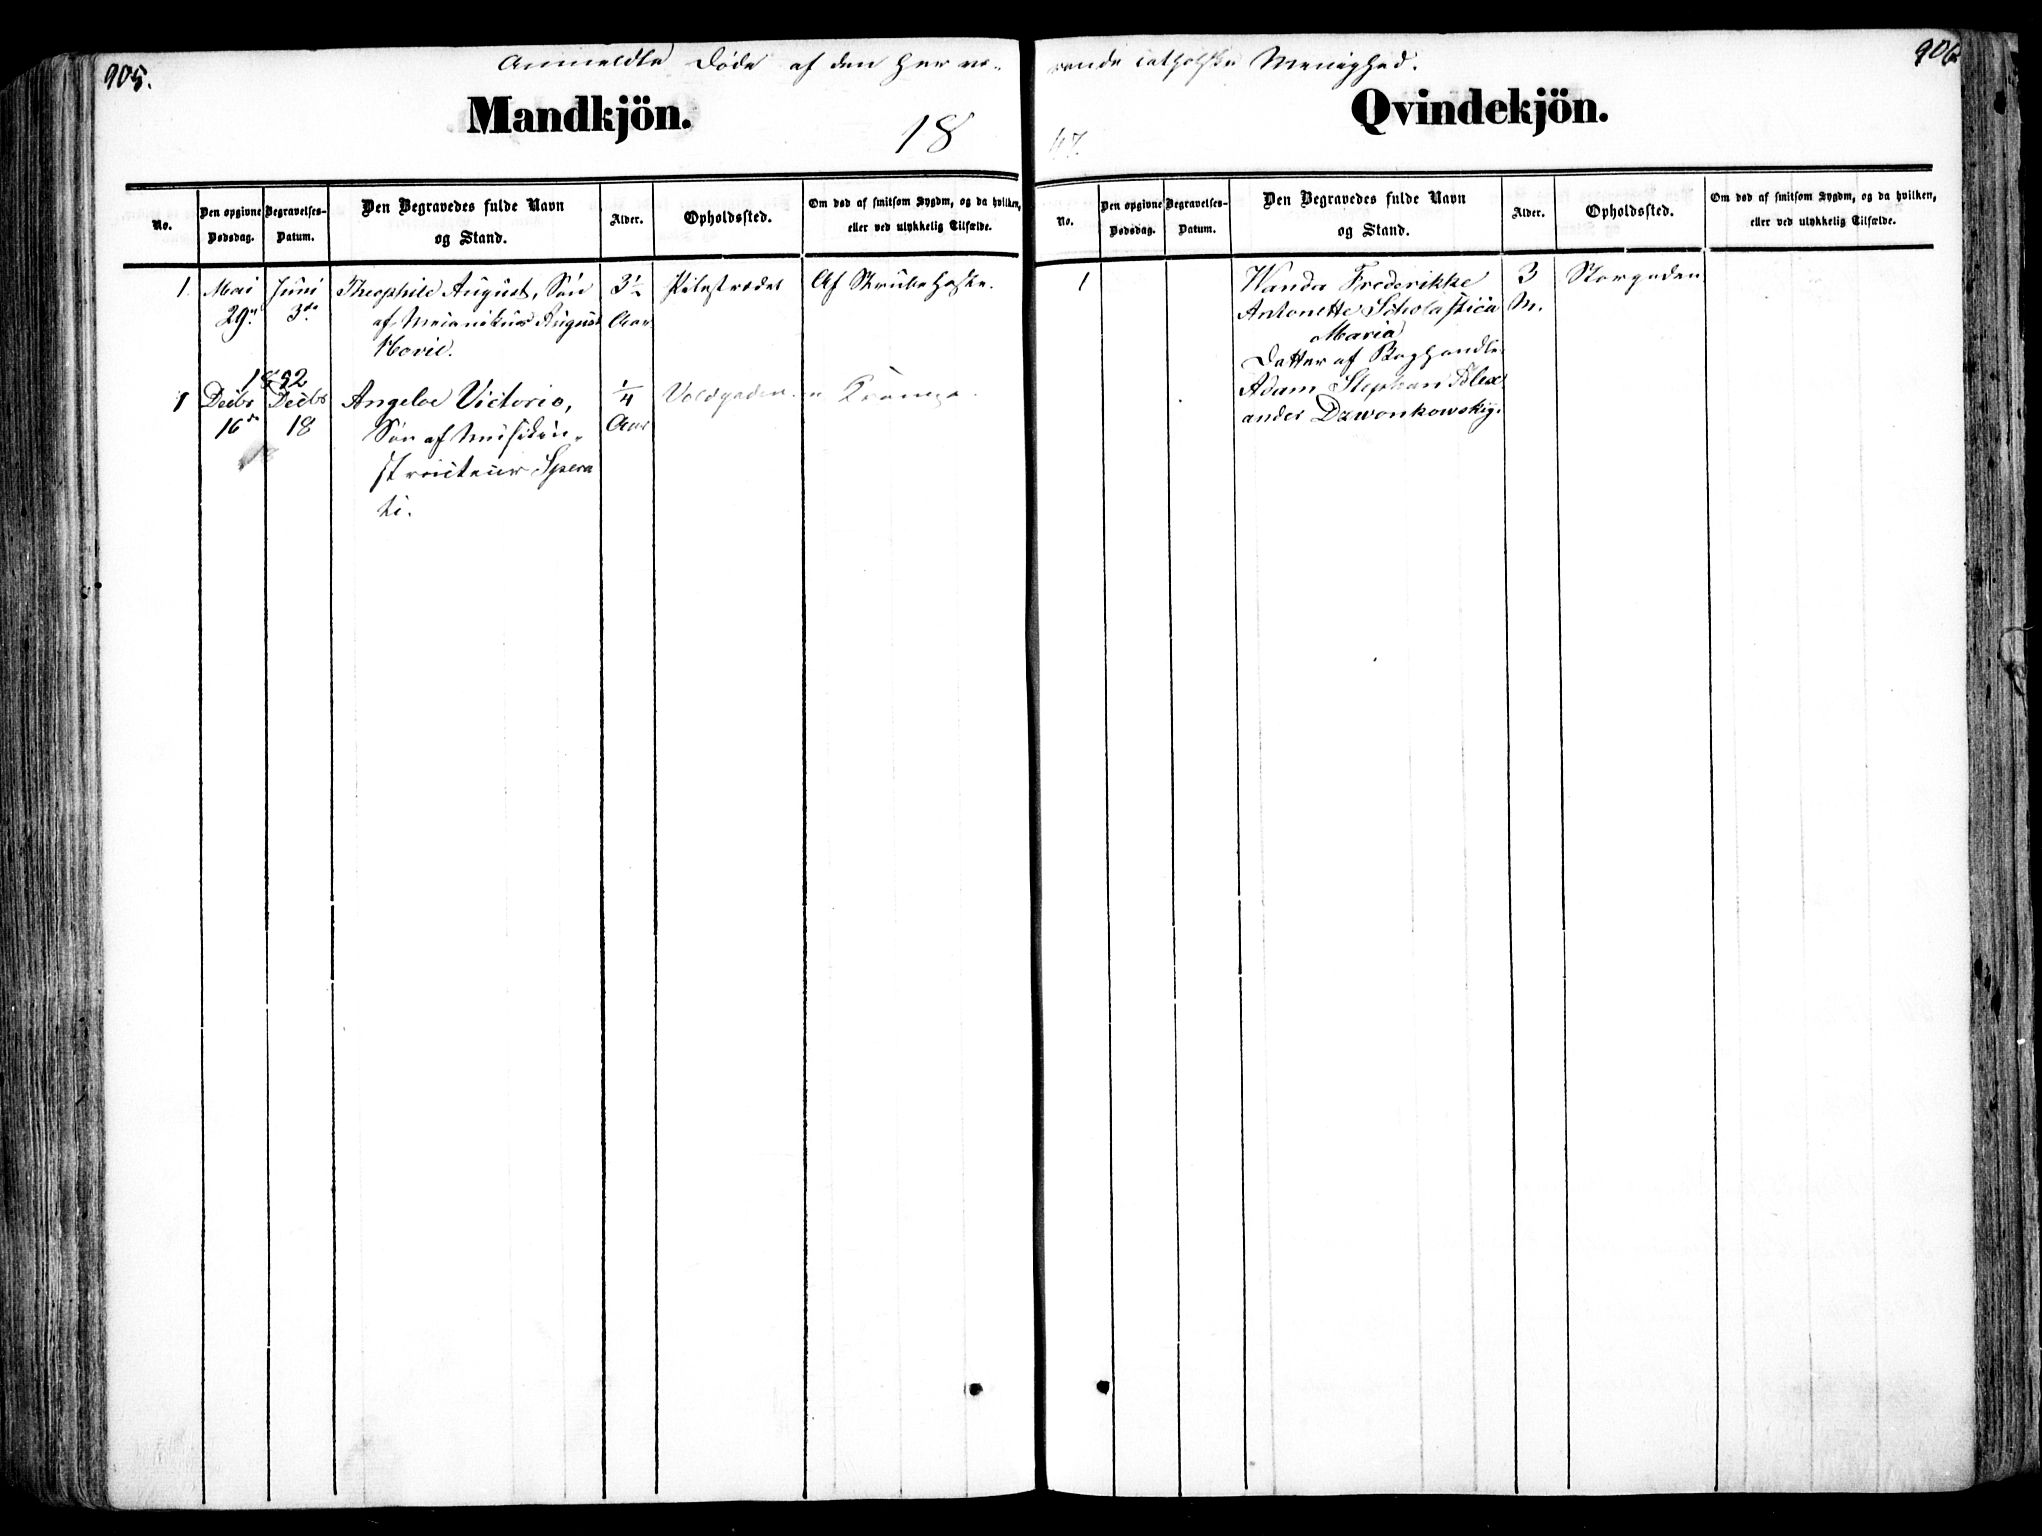 905.
Anmeldte Døde af den hervæ-
Mandkjön.
18
No.
Den opgivne Dødsdag.
Begravelses-Datum.
Den Begravedes fulde Navn og Stand.
Alder.
Opholdssted.
Om død af smitsom Sygdm, og da hvilken, eller ved ulykkelig Tilfælde.
1. Mai Juni Theophile August, Søn 3½ Pilestrædet Af Strubehoste.
29de 3de af Mecanikus August Aar
1852
1 Decbr Decbr Angeloe Victorio, ¼ Voldgaden
16de 18 Søn af Musikin- Aar
structeur Spera
ti.
906
rende catholske Menighed.
Qvindekjön.
47
No.
Den opgivne Dødsdag.
Begravelses-Datum.
Den Begravedes fulde Navn og Stand.
Alder.
Opholdssted.
Om død af smitsom Sygdm, og da hvilken, eller ved ulykkelig Tilfælde.
1 Wanda Frederikke 3 Storgaden
Antonette Scholastica M.
Maria
Datter af Boghandler
Adam Stephan Alex
ander Dzwonkowsky.